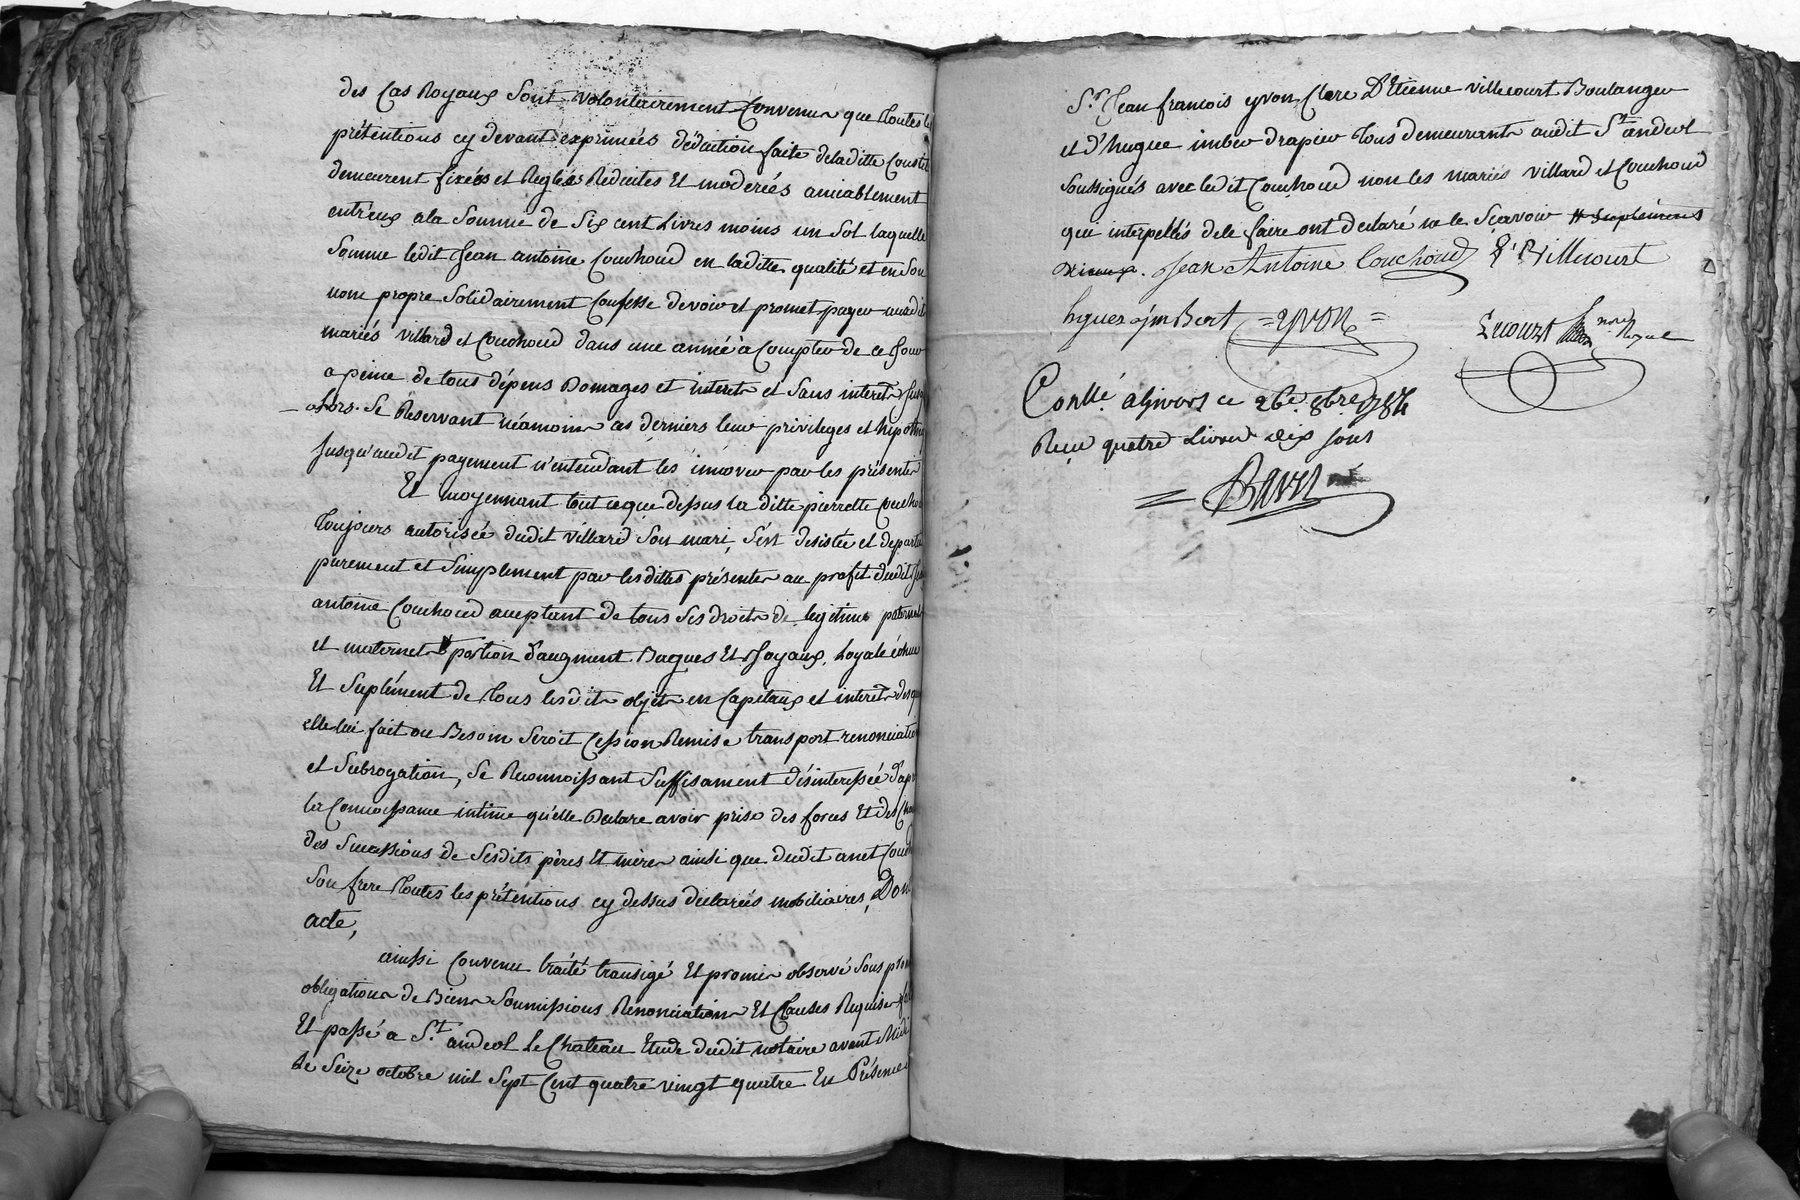 des Cas Royaux Sont volontairement Convenus que toutes les
prétentions cy devant exprimées déduction faite de laditte Constit
demeurent fixées et Reglées Réduites Et moderées amiablement
entreux a la Somme de Six cent Livres moins un Sol laquelle
Somme ledit Jean antoine Couchoud en laditte qualité et en Son
nom propre Solidairement Confesse devoir et promet payer auxdit
mariés villard et Couchoud dans une année à Compter de ce Jour
a peine de tous dépens Domages et interets et Sans interets Jusq
alors. Se Réservant néamoins ces derniers leur privileges et hipothe
Jusqu'audit payement n'entendant les innover par les présentes
Et moyennant tout ce que dessus la ditte pierrette Coucho
toujours autorisée dudit villard Son mari, S'est desistée et departie
purement et Simplement par lesdittes présentes au profit dudit Jean
antoine Couchoud acceptant de tous Ses droits de legitime paternels
et maternels portion d'augment Bagues Et Joyaux, hoyrie échue
Et Suplément de tous lesdits objets en Capitaux et interets desquels
elle lui fait ou Besoin Seroit Cession Remise transport renonciation
et Subrogation, Se Reconnoissant Suffisament désinteressée d'apr
la Connoissance intime qu'elle Déclare avoir prise des forces Et des Cha
des Successions de Sesdits pères Et mères ainsi que dudit anet Couch
Son frere toutes les prétentions cy dessus déclarées mobiliaires, Dont
acte,
ainsi Convenu traité transigé Et promis observé Sous prom
obligations de Biens Soumissions Renonciations Et Clauses Requises
Et passé a St. andeol le Chateau Etude dudit notaire avant Midi
Le Seize octobre mil Sept Cent quatre vingt quatre En Présence
Sr. Jean francois yvon Clerc D'Etienne villecourt Boulanger
et d'hugue imber drapier tous demeurants audit St andeol
Soussignés avec ledit Couchoud non les mariés villard et Couchoud
qui interpellés de le faire ont declaré ne le Sçavoir
Jean Antoine Couchoud E. Villecourt
hgues jmBert =yvon= Lecourt nore Royal
Conllé. a Givors ce 26e. 8bre 1784
Reçu quatre Livres dix sous